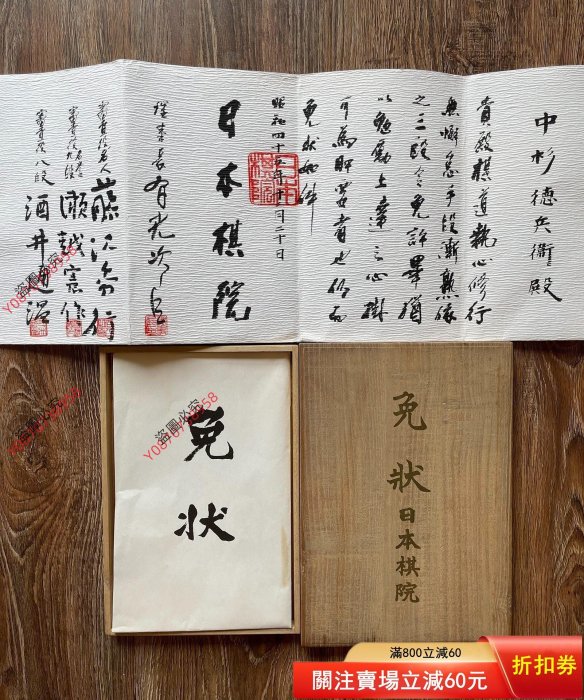 中杉德兵衛殿
貴殿棋道執心修行
無懈怠手段漸熟依
之三段令免許畢猶
以勉勵上達之心掛
可為肝要者也仍而
免状如件
昭和四十五年 月二十日
日本棋院
理事長 有光次郎
審査役名人 藤沢秀行
審査役 瀬越憲作
審査役八段 酒井通温
免状
免状
日本棋院
盜圖必究
盜圖必究
盜圖必究
滿800立減60
關注賣場立減60元
折扣券